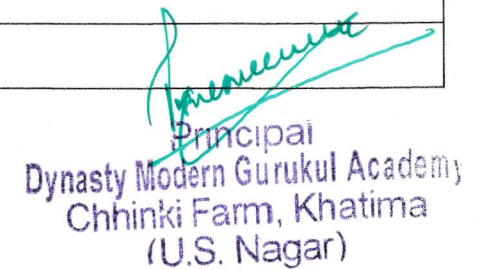 Principal
Dynasty Modern Gurukul Academy
Chhinki Farm, Khatima
(U.S. Nagar)